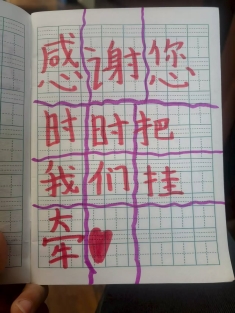 感谢您
时时把
我们挂
牵